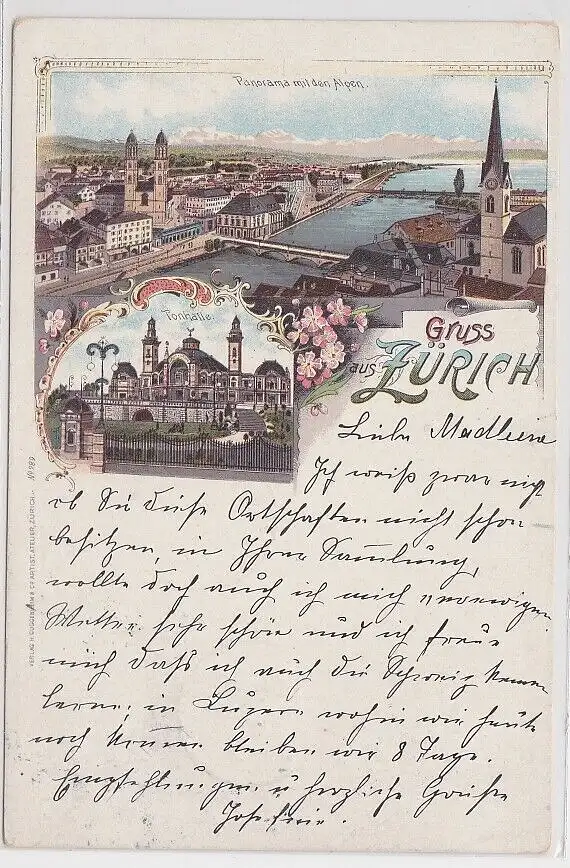 Panorama mit den Alpen.
Tonhalle.
Gruss
aus ZÜRICH
Liebe Madleene
Ich weiß zwar nicht
ob Sie diese Ortschaften nicht schon
besitzen, in Ihrer Sammlung,
wollte doch auch ich mich verewigen
Wetter sehr schön und ich freue
mich daß ich auch die Schweiz kennen
lerne, in Luzern wohin wir heute
noch kommen bleiben wir 8 Tage.
Empfehlungen u herzliche Grüße
Josefine.
VERLAG H. GUGGENHEIM & Cº ARTIST. ATELIER, ZÜRICH.- Nº 989